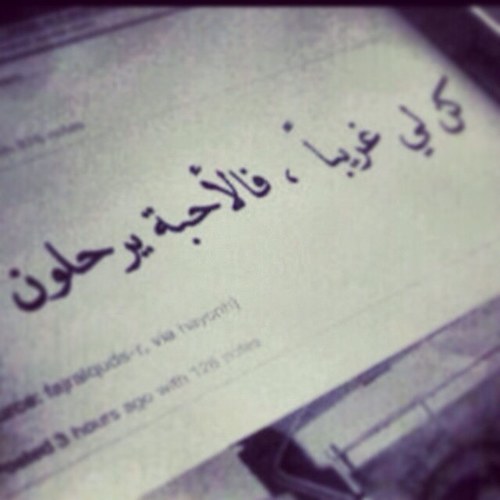 876 notes
كن لي غريباً ، فالأحبة يرحلون
fayralquds-r, via hayonh)
posted 3 hours ago with 128 notes